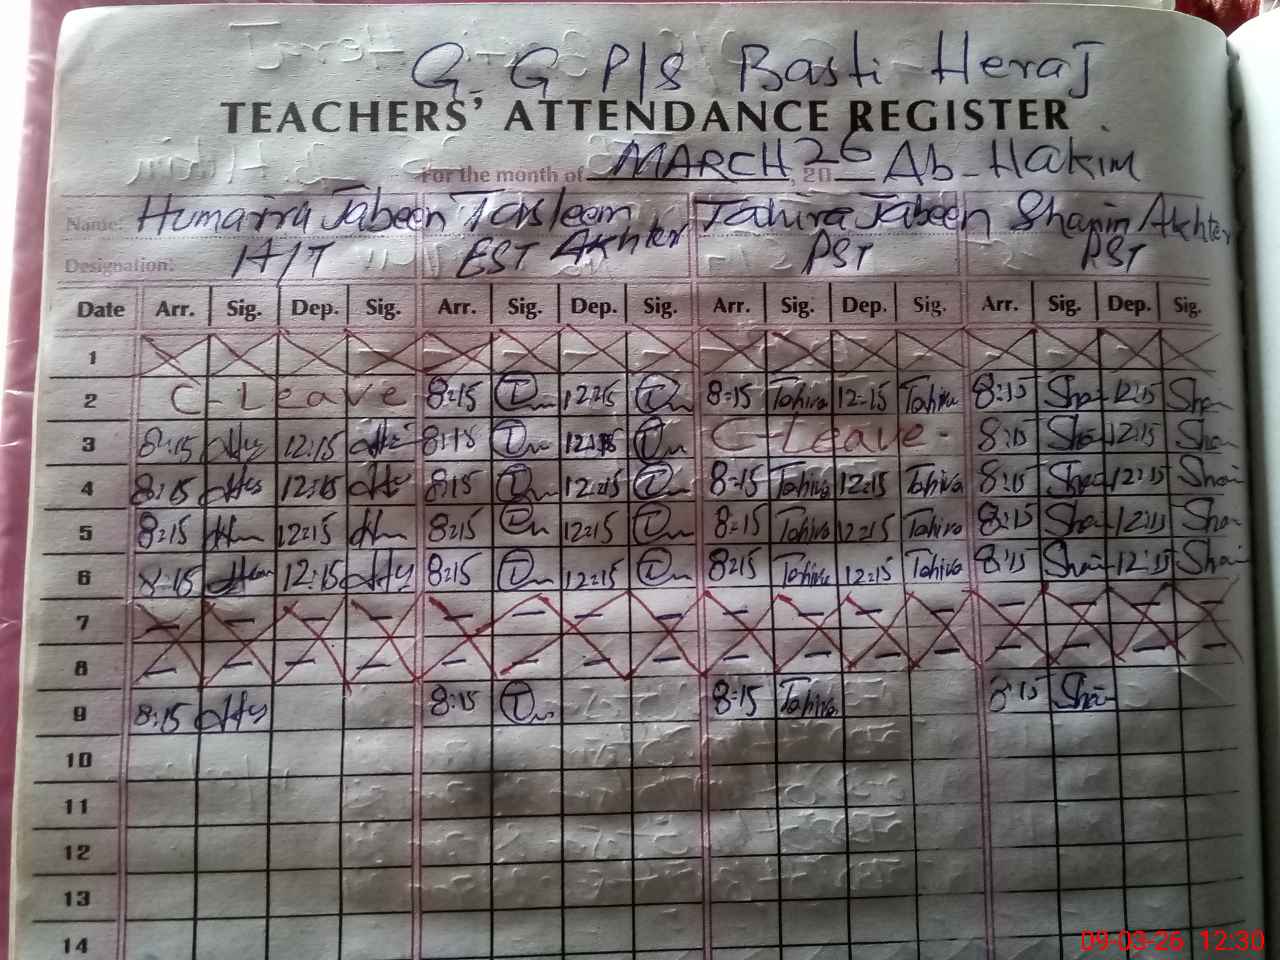 G. G P/S Basti Heraj
TEACHERS' ATTENDANCE REGISTER
For the month of MARCH 26, 20 Ab-Hakim
Name: Humaira Jabeen Tasleem Tahira Jabeen Shamim Akhter
Designation: H/T EST Akhter PST PST
Date Arr. Sig. Dep. Sig. Arr. Sig. Dep. Sig. Arr. Sig. Dep. Sig. Arr. Sig. Dep. Sig.
1
2 C-Leave 8:15 12:15 8:15 Tahira 12:15 Tahira 8:15 12:15
3 8:15 12:15 8:15 12:15 C-Leave 8:15 12:15
4 8:15 12:15 8:15 12:15 8:15 Tahira 12:15 Tahira 8:15 12:15
5 8:15 12:15 8:15 12:15 8:15 Tahira 12:15 Tahira 8:15 12:15
6 8:15 12:15 8:15 12:15 8:15 Tahira 12:15 Tahira 8:15 12:15
7
8
9 8:15 8:15 8:15 Tahira 8:15
10
11
12
13
14
09-03-26 12:30